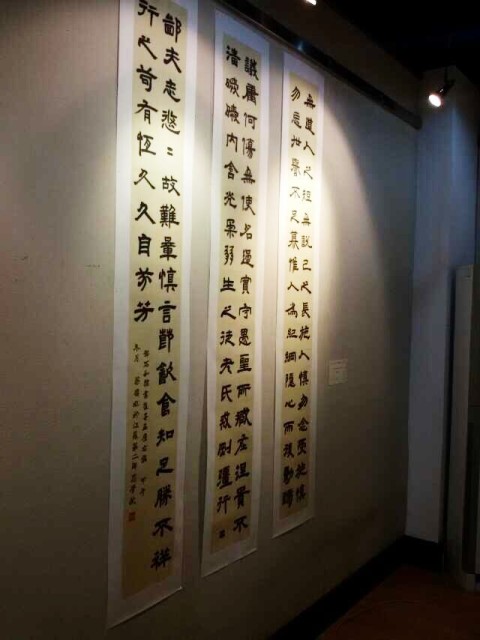 無道人之短無說己之長施人慎勿念受施慎
勿忘世譽不足慕惟人為紀綱隱心而後動謗
議庸何傷無使名過實守愚聖所臧在涅貴不
淄曖曖內含光柔弱生之徒老氏誡剛彊行
鄙夫志悠〻故難量慎言節飲食知足勝不祥
行之苟有恆久久自芬芳
甲午
冬月 於江蘇第二師範學院